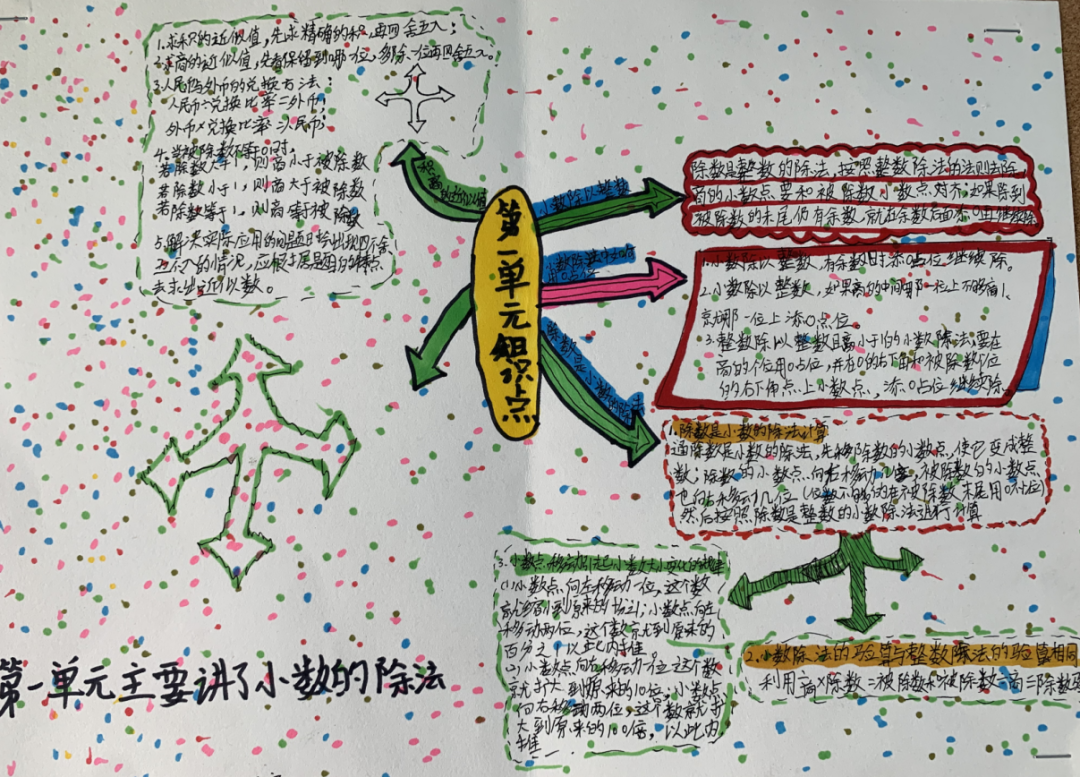 1.求积的近似值,先求精确的积,再四舍五入;
2.求商的近似值,先看保留到哪一位,多除一位再四舍五入。
3.人民币与外币的兑换方法:
人民币÷兑换比率=外币;
外币×兑换比率=人民币;
4.当被除数不等于0时,
若除数大于1,则商小于被除数
若除数小于1,则商大于被除数
若除数等于1,则商等于被除数
5.解决实际应用的问题时
的情况,应根据题目的特点
去求出近似数。
积、商的近似值
第一单元知识点
小数除以整数
除数是小数的除法
除数是整数的除法,按照整数除法的法则去除
商的小数点要和被除数小数点对齐,如果除到
被除数的末尾仍有余数,就在余数后面添0再继续除
1.小数除以整数,有余数时添0占位继续除。
2.小数除以整数,如果商的中间哪一位上不够商1,
就哪一位上添0占位。
3.整数除以整数且商小于1的小数除法,要在
商的个位用0占位,并在0的右下角和被除数个位
的右下角点上小数点,添0占位继续除
1.除数是小数的除法计算
遇除数是小数的除法,先移除数的小数点,使它变成整
数;除数的小数点向右移动几位,被除数的小数点
也向右移动几位(位数不够的在被除数末尾用0补位)
然后按照除数是整数的小数除法进行计算
2.小数除法的验算与整数除法的验算相同
利用商×除数=被除数和被除数÷商=除数
3.小数点移动引起小数大小变化的规律
(1)小数点向左移动一位,这个数
就缩小到原来的十分之1;小数点向左
移动两位,这个数就到原来的
百分之1以此内推。
(2)小数点向右移动一位这个数
就扩大到原来的10倍,小数点
向右移动两位,这个数就扩
大到原来的100倍,以此内
推
第一单元主要讲了小数的除法